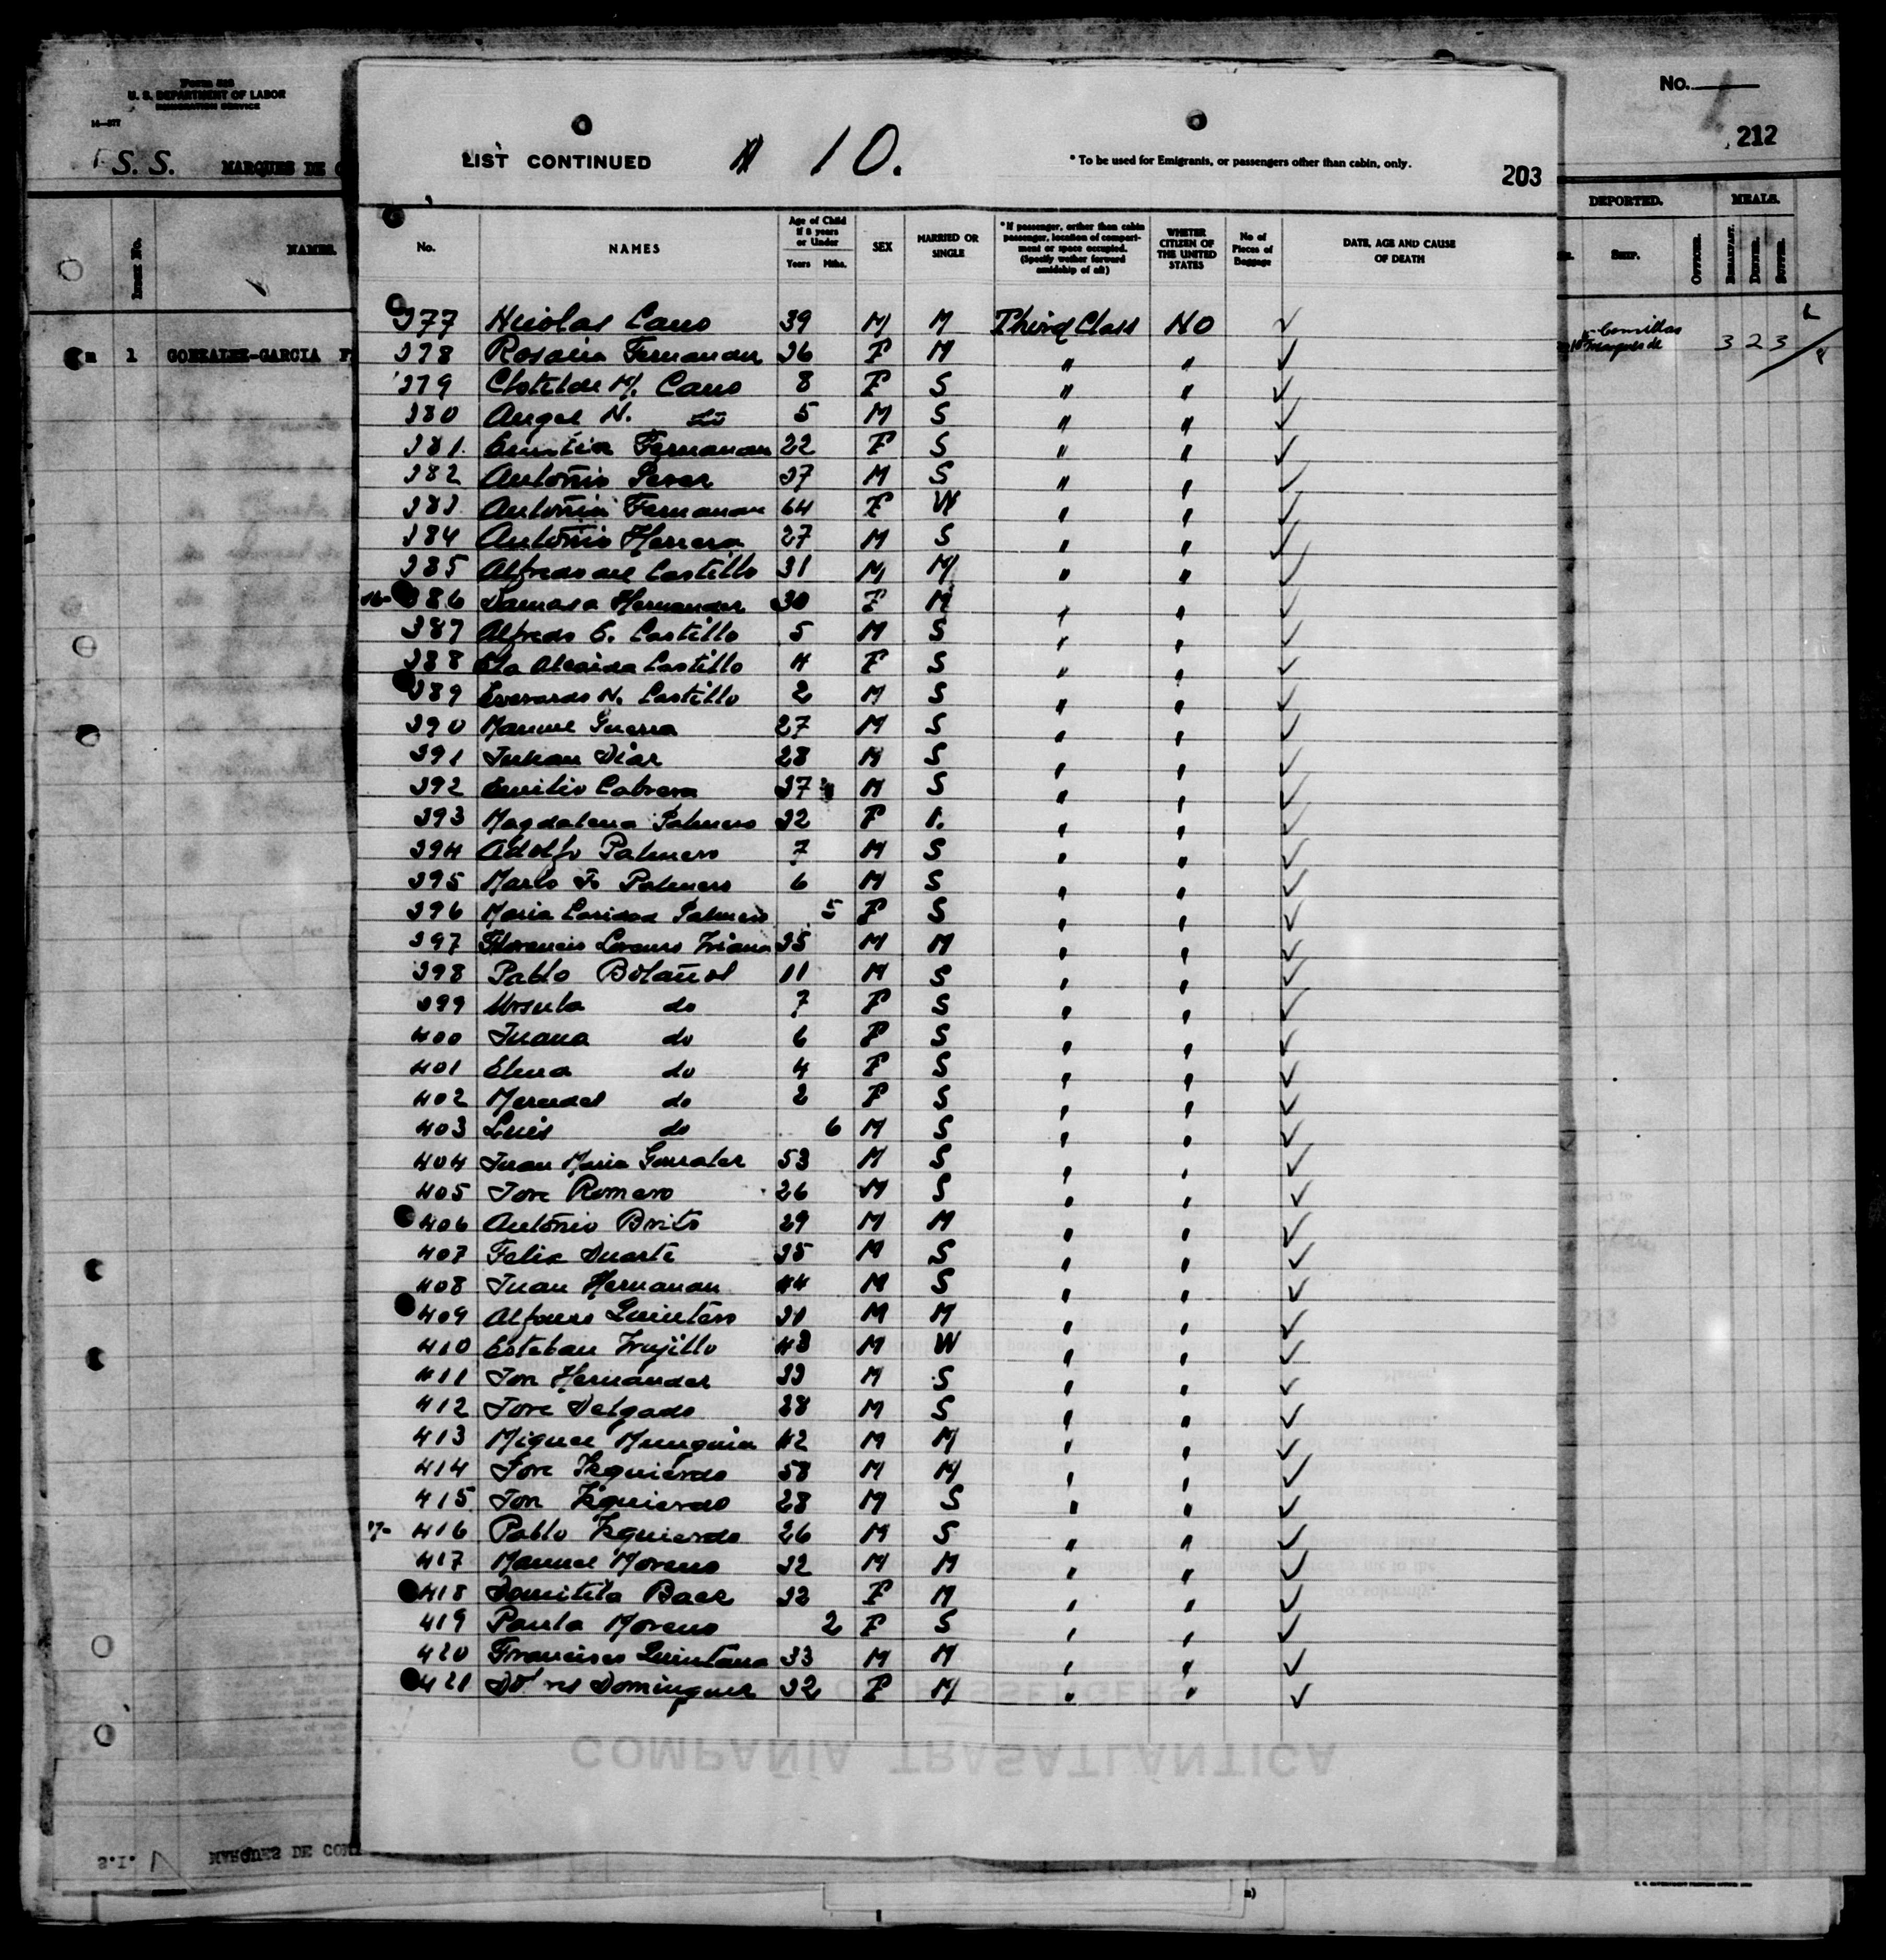 Form 508
U. S. DEPARTMENT OF LABOR
IMMIGRATION SERVICE
14—577
S. S. MARQUES DE C
Index No. NAMES.
1 GONZALEZ-GARCIA F
LIST CONTINUED # 10. * To be used for Emigrants, or passengers other than cabin, only. 203
No. NAMES Age of Child if 8 years or Under Years Mths. SEX MARRIED OR SINGLE * If passenger, orther than cabin passenger, location of compartment or space occupied. (Specify wether forward amidship of aft) WHETER CITIZEN OF THE UNITED STATES No of Pieces of Baggage DATE, AGE AND CAUSE OF DEATH
377 Nicolas Cano 39 M M Third Class NO ✓
378 Rosalia Fernandez 36 F M " " ✓
379 Clotilde M. Cano 8 F S " " ✓
380 Angel N. do 5 M S " " ✓
381 Fernandez 22 F S " " ✓
382 Antonio 37 M S " " ✓
383 Antonia Fernandez 64 F W " " ✓
384 Antonio Herrera 27 M S " " ✓
385 Alfredo del Castillo 31 M M " " ✓
16- 386 Damasa Hernandez 30 F M " " ✓
387 Alfredo C. Castillo 5 M S " " ✓
388 Castillo 4 F S " " ✓
389 Everardo N. Castillo 2 M S " " ✓
390 Manuel Guerra 27 M S " " ✓
391 Julian Diaz 28 M S " " ✓
392 Emilio Cabrera 37 M S " " ✓
393 Magdalena Palmero 32 F " " ✓
394 Adolfo Palmero 7 M S " " ✓
395 Palmero 6 M S " " ✓
396 Maria Caridad Palmero 5 F S " " ✓
397 Florencio Lorenzo Triana 35 M M " " ✓
398 Pablo Bolaños 11 M S " " ✓
399 Ursula do 7 F S " " ✓
400 Juana do 6 F S " " ✓
401 Elena do 4 F S " " ✓
402 Mercedes do 2 F S " " ✓
403 Luis do 6 M S " " ✓
404 Juan Maria Gonzalez 53 M S " " ✓
405 Jose Romero 26 M S " " ✓
406 Antonio Brito 29 M M " " ✓
407 Felix Duarte 35 M S " " ✓
408 Juan Hernandez 44 M S " " ✓
409 Alfonso Quintero 31 M M " " ✓
410 Esteban Trujillo 43 M W " " ✓
411 Jose Hernandez 33 M S " " ✓
412 Jose Delgado 38 M S " " ✓
413 Miguel Munguia 42 M M " " ✓
414 Jose Izquierdo 58 M M " " ✓
415 Jose Izquierdo 28 M S " " ✓
17- 416 Pablo Izquierdo 26 M S " " ✓
417 Manuel Moreno 32 M M " " ✓
418 Domitila Baez 32 F M " " ✓
419 Paula Moreno 2 F S " " ✓
420 Francisco Quintana 33 M M " " ✓
421 Dominguez 32 F M " " ✓
COMPAÑÍA TRASATLÁNTICA
S.I. MARQUES DE COM
No. 1
212
DEPORTED. MEALS.
Ship. Officer. Breakfast. Dinner. Supper.
Comillas
Marques de 3 2 3